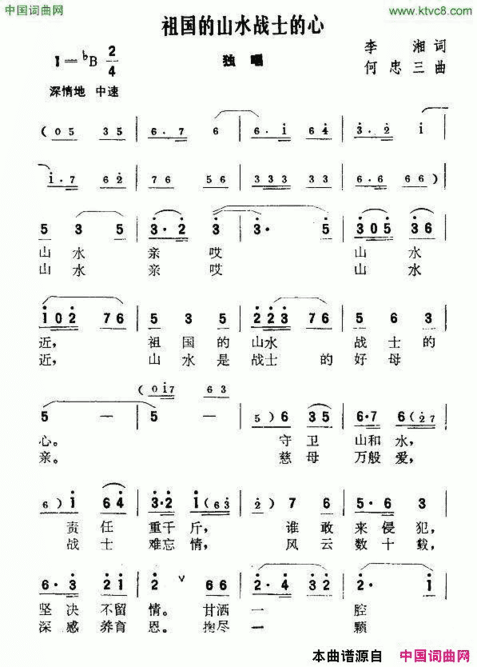 中国词曲网
www.ktvc8.com
祖国的山水战士的心
1=♭B 2/4
独唱
李湘词
何忠三曲
深情地 中速
(05 35 | 6·7 6 | 6·i 64 | 3·2 i |
i·7 62 | 76 56 | 333 33 | 6·6 66) |
5 3 5 | 3·2 3 | 3· 5 | 305 36 |
山水 亲哎 山水
山水 亲哎 山水
102 76 | 5 3 5 | 223 76 | 5 6 3 |
近, 祖国的山水 战士的
近, 山水是战士的好母
(0i7 63
5 — | 5 — | 5) 6 35 | 6·7 6(27 |
心。 守卫山和水,
亲。 慈母万般爱,
6) i 64 | 3·2 i(63 | 2) 7 6 | 5·6 3 |
责任重千斤, 谁敢来侵犯,
战士难忘情, 风云数十载,
6·3 21 | 2 ∨ 66 | 2·4 32 | 2· i |
坚决不留情。甘洒一腔
深感养育恩。掬尽一颗
本曲谱源自 中国词曲网